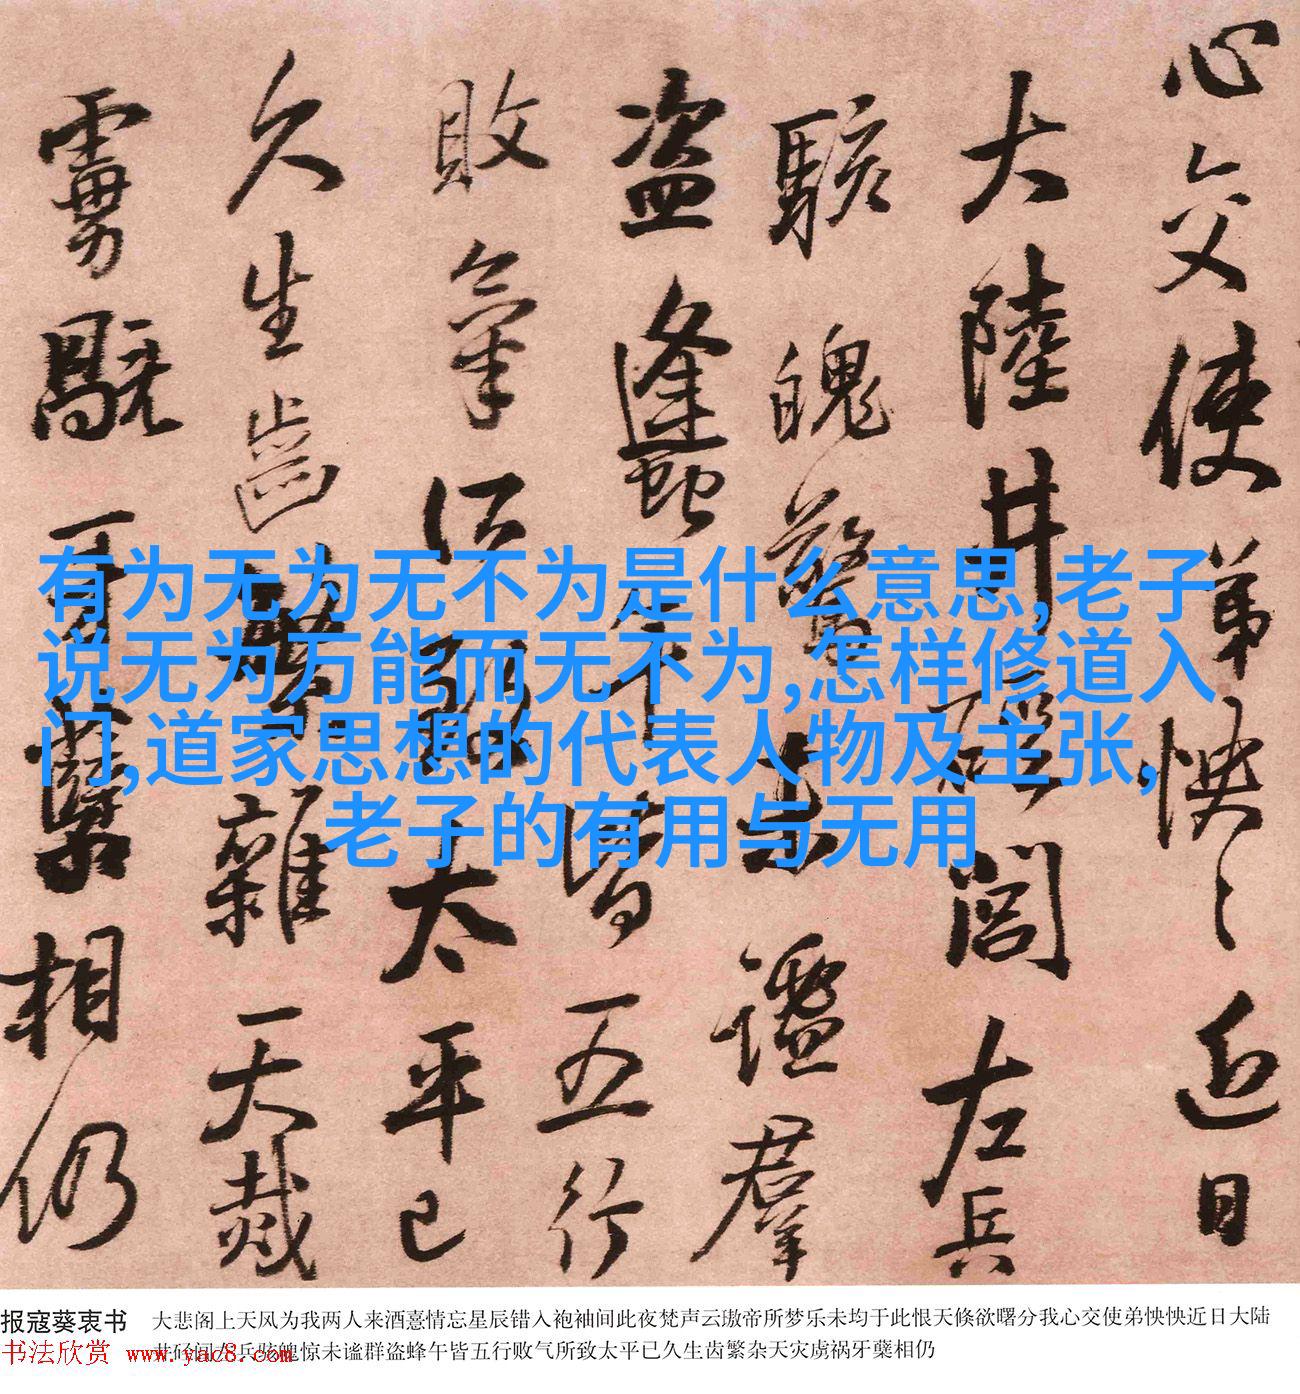 心交使弟怏怏近日
大陸井磑閣左兵
駭魄驚未謐羣
盗蠭午皆五行
敗氣所致太平已
久生齒繁雜天烖
雩
牙櫱相仍
有为无为无不为是什么意思,老子
说无为万能而无不为,怎样修道入
门,道家思想的代表人物及主张,
老子的有用与无用
报寇葵衷书 大悲阁上天风为我两人来酒憙情忘星辰错入袍袖间此夜梵声云璈帝所梦乐未均于此恨天倏欲曙分我心交使弟怏怏近日大陆
井砼阁左兵骇魄惊未谧群盗蜂午皆五行败气所致太平已久生齿繁杂天灾虏祸牙蘖相仍
书法欣赏 www.yac8.com